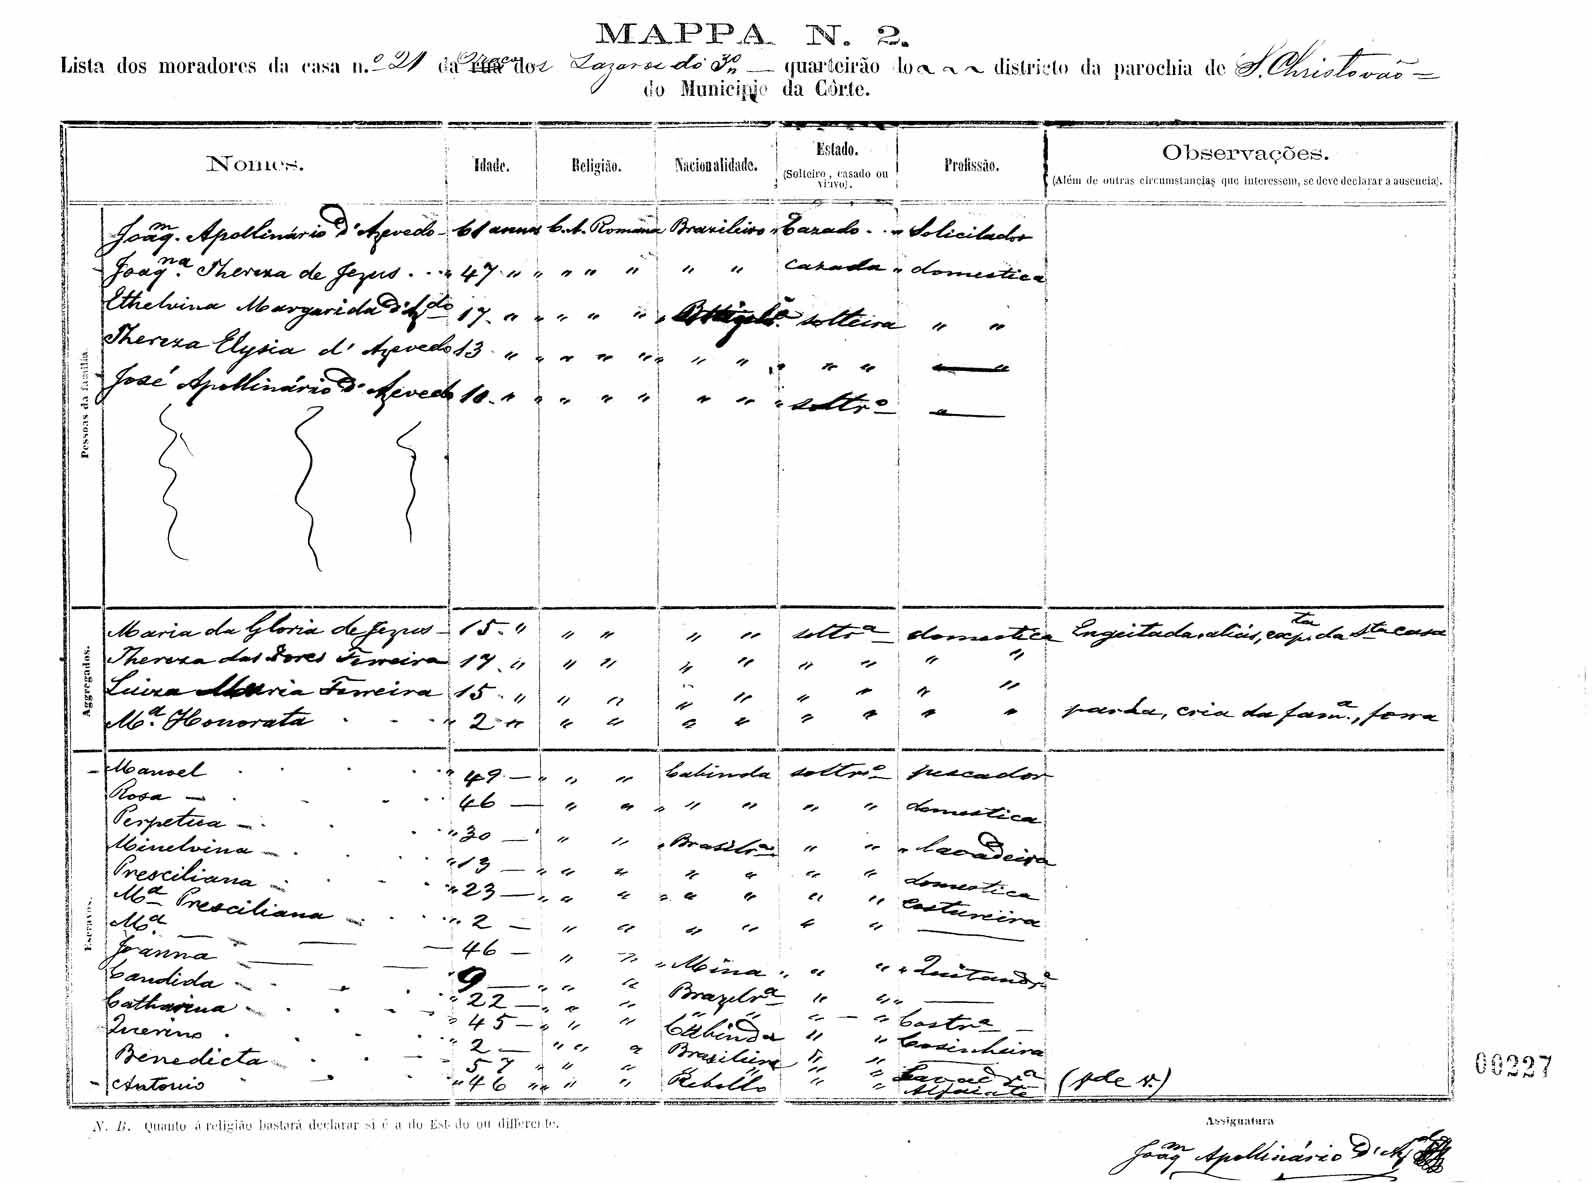 MAPPA N. 2.
Lista dos moradores da casa n.º 21 da rua dos Lazaros do quarteirão do districto da parochia de S. Christovão
do Municipio da Côrte.
Nomes. Idade. Religião. Nacionalidade. Estado. (Solteiro, casado ou viuvo). Profissão. Observações. (Além de outras circumstancias que interessem, se deve declarar a ausencia).
Pessoas da familia.
Joaqm. Apollinário d'Azevedo 61 annos C. A. Romana Brazileiro Cazado Solicitador
Joaqna. Thereza de Jezus 47 " " " " " " cazada " domestica
Ethelvina Margarida d'Azdo 17 " " " " " solteira " "
Thereza Elysia d'Azevedo 13 " " " " " " " " " "
José Apollinário d'Azevedo 10 " " " " " " " " soltro "
Aggregados.
Maria da Gloria de Jezus 15 " " " " " soltra domestica Engeitada, aliás, expta da Sta casa
Thereza das Dores Ferreira 17 " " " " " " " " "
Luiza Maria Ferreira 15 " " " " " " " " "
Ma. Honorata " 2 " " " " " " " " " parda, cria da fama., forra
Escravos.
Manoel " 49 " " " Cabinda soltro pescador
Rosa 46 " " " " " " " domestica
Perpetua " 30 " " Brasilra " " " lavadeira
Minelvina " 13 " " " " " " " domestica
Presciliana " 23 " " " " " " " costureira
Ma Presciliana " 2 " " " " " "
Ma. 46 " " " Mina " " " " Quitandra
Joanna 9 " " " Brazilra " "
Candida " 22 " " " " " " " Costra
Catharina " 45 " " " Cabinda " " Cosinheira
Querino " 2 " " " Brasileiro " "
Benedicta 57 " " " " " " " Lavadra
Antonio " 46 " " " " Rebollo " " Alfaiate
00227
N. B. Quanto á religião bastará declarar si é a do Estado ou differente.
Assignatura
Joaqm Apollinário d'Azdo